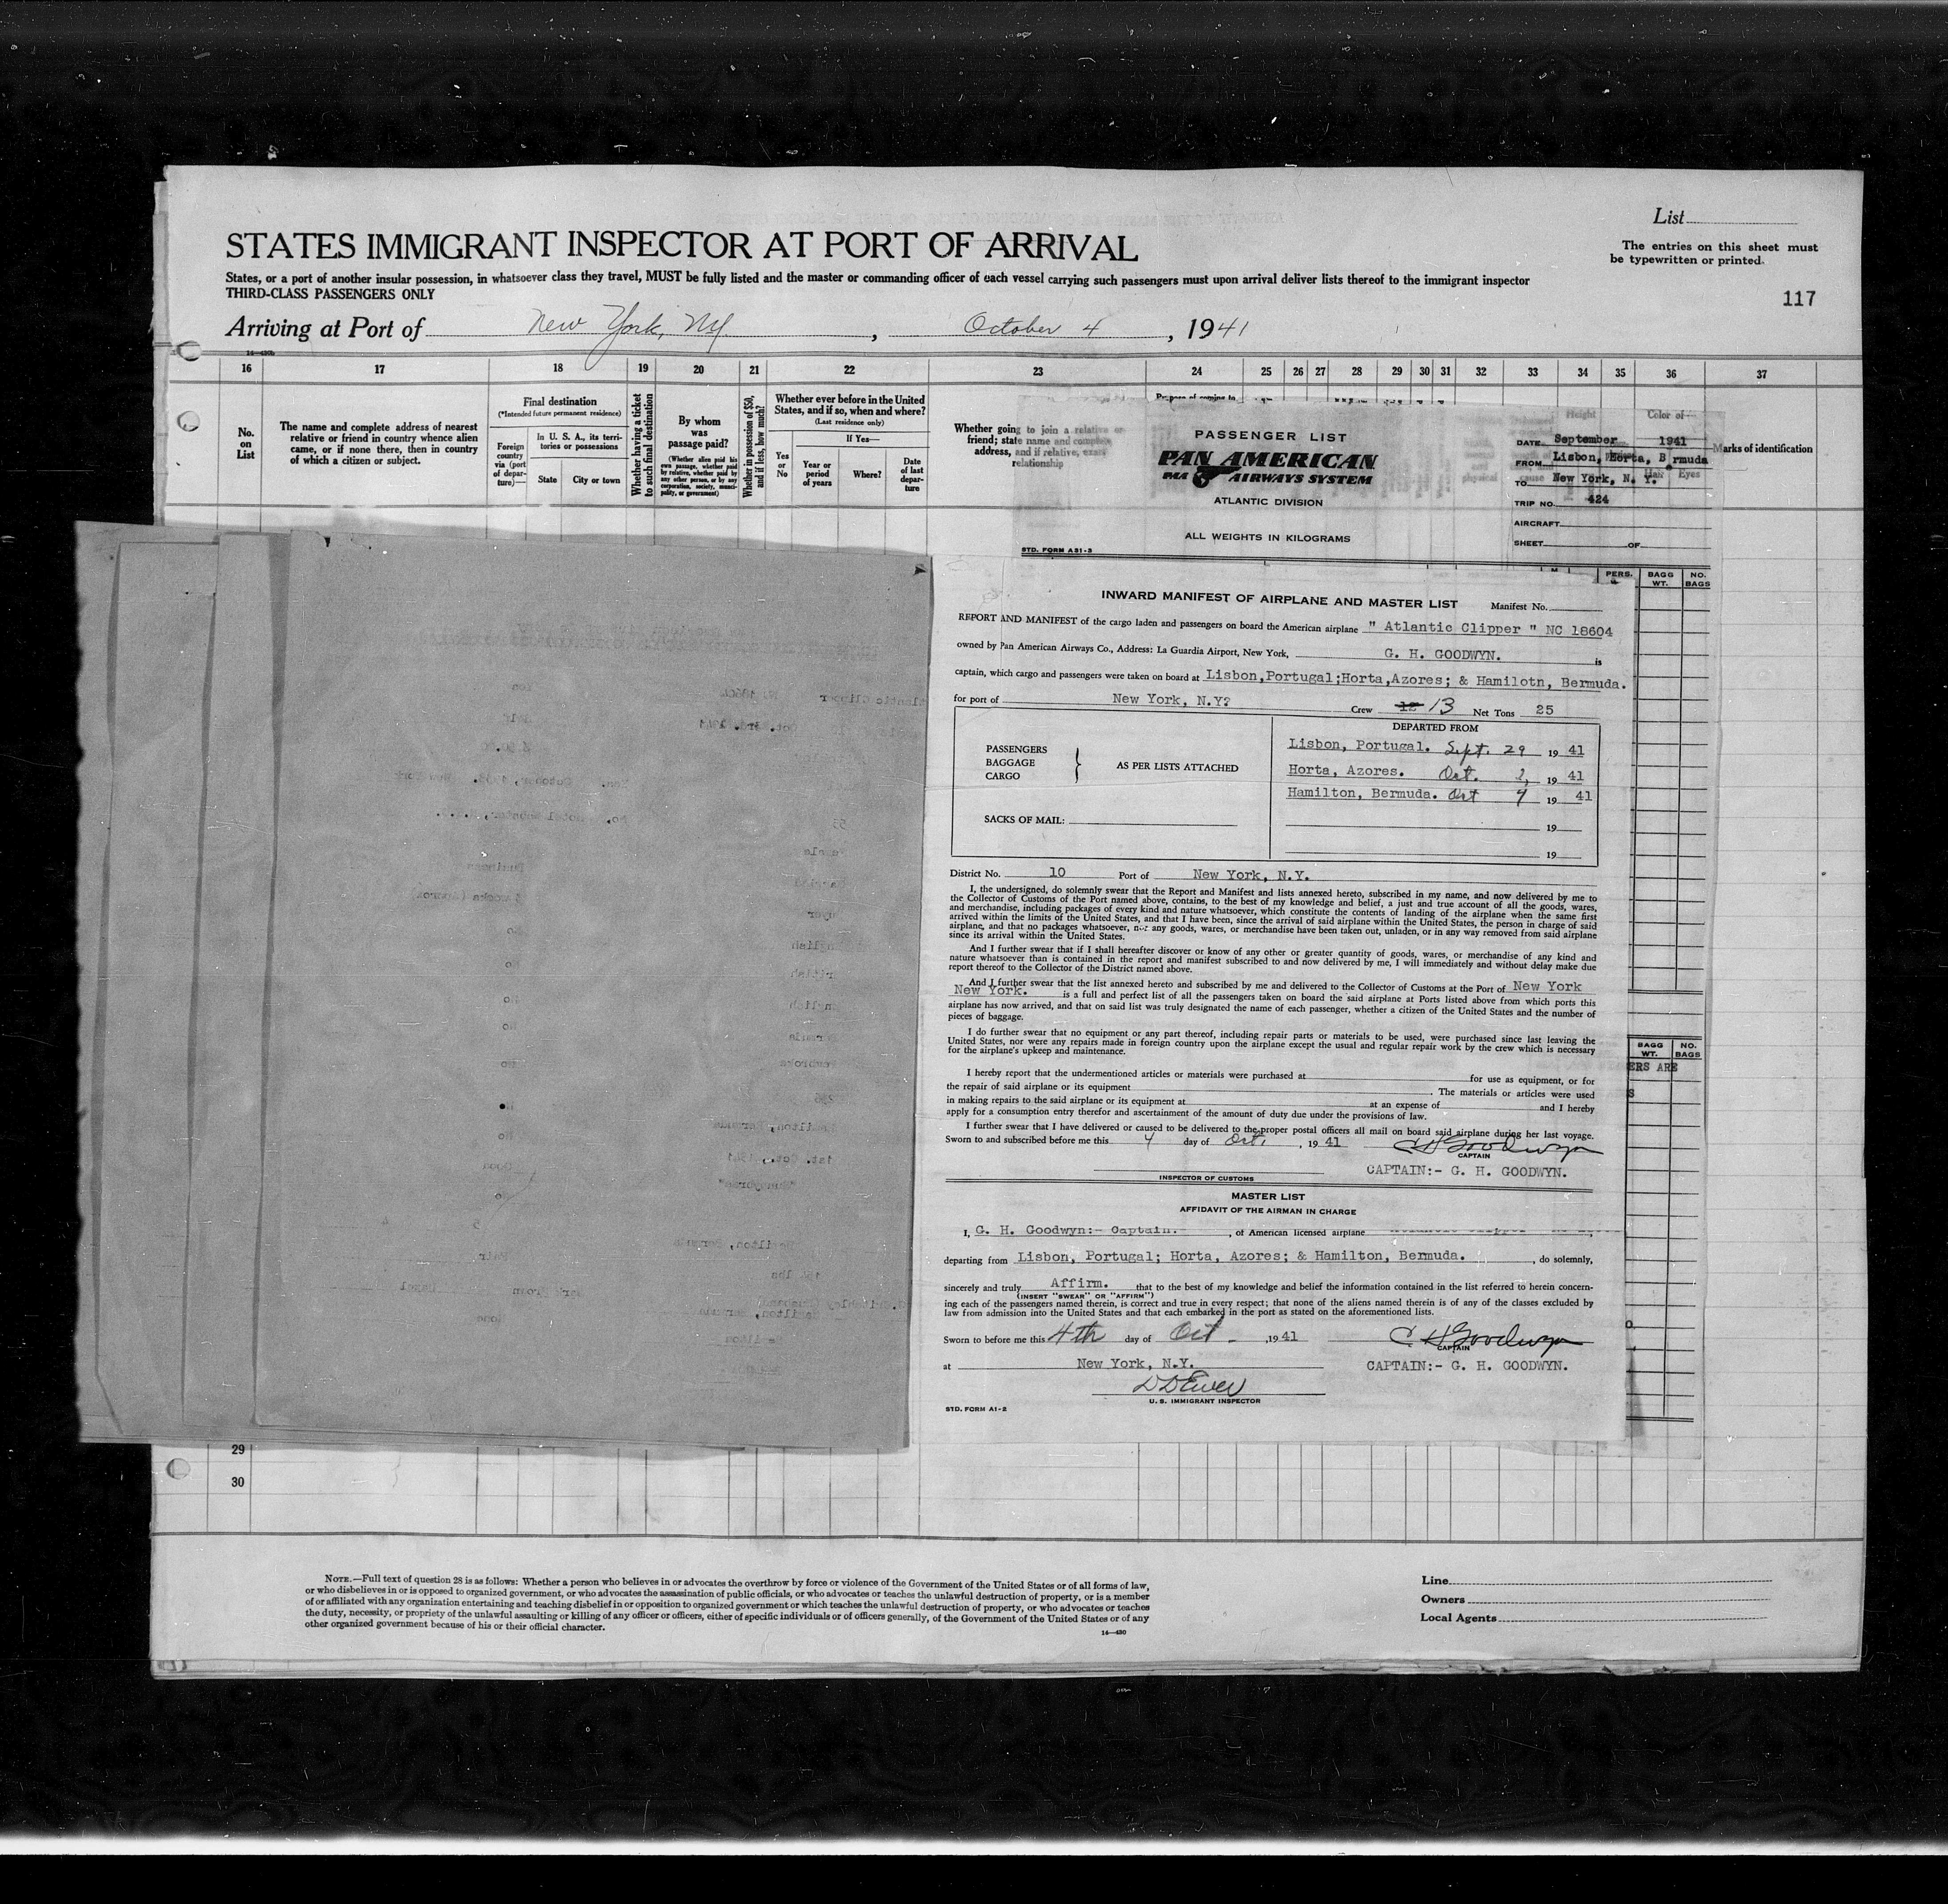 List
STATES IMMIGRANT INSPECTOR AT PORT OF ARRIVAL
The entries on this sheet must
be typewritten or printed.
States, or a port of another insular possession, in whatsoever class they travel, MUST be fully listed and the master or commanding officer of each vessel carrying such passengers must upon arrival deliver lists thereof to the immigrant inspector
THIRD-CLASS PASSENGERS ONLY
117
Arriving at Port of New York, NY, October 4, 1941
14-430b
16 17 18 19 20 21 22 23 24 25 26 27 28 29 30 31 32 33 34 35 36 37
No.
on
List
The name and complete address of nearest
relative or friend in country whence alien
came, or if none there, then in country
of which a citizen or subject.
Final destination
(*Intended future permanent residence)
Foreign
country
via (port
of depar-
ture)—
In U. S. A., its terri-
tories or possessions
State
City or town
Whether having a ticket
to such final destination
By whom
was
passage paid?
(Whether alien paid his
own passage, whether paid
by relative, whether paid by
any other person, or by any
corporation, society, munici-
pality, or government)
Whether in possession of $50,
and if less, how much?
Whether ever before in the United
States, and if so, when and where?
(Last residence only)
Yes
or
No
If Yes—
Year or
period
of years
Where?
Date
of last
depar-
ture
Whether going to join a relative or
friend; state name and complete
address, and if relative, exact
relationship
Purpose of coming to
Height
Color of—
Hair
Eyes
Marks of identification
PASSENGER LIST
PAN AMERICAN
PAA AIRWAYS SYSTEM
ATLANTIC DIVISION
ALL WEIGHTS IN KILOGRAMS
STD. FORM A31-3
DATE September 1941
FROM Lisbon, Horta, B rmuda
TO New York, N. Y.
TRIP NO. 424
AIRCRAFT
SHEET OF
PERS.
BAGG
WT.
NO.
BAGS
INWARD MANIFEST OF AIRPLANE AND MASTER LIST
Manifest No.
REPORT AND MANIFEST of the cargo laden and passengers on board the American airplane " Atlantic Clipper " NC 18604
owned by Pan American Airways Co., Address: La Guardia Airport, New York, G. H. GOODWYN. is
captain, which cargo and passengers were taken on board at Lisbon,Portugal;Horta,Azores; & Hamilotn, Bermuda.
for port of New York, N.Y? Crew 12 13 Net Tons 25
PASSENGERS
BAGGAGE
CARGO
} AS PER LISTS ATTACHED
SACKS OF MAIL:
DEPARTED FROM
Lisbon, Portugal. Sept. 29 19 41
Horta, Azores. Oct. 2, 19 41
Hamilton, Bermuda. Oct 4 19 41
19
19
District No. 10 Port of New York, N.Y.
I, the undersigned, do solemnly swear that the Report and Manifest and lists annexed hereto, subscribed in my name, and now delivered by me to
the Collector of Customs of the Port named above, contains, to the best of my knowledge and belief, a just and true account of all the goods, wares,
and merchandise, including packages of every kind and nature whatsoever, which constitute the contents of landing of the airplane when the same first
arrived within the limits of the United States, and that I have been, since the arrival of said airplane within the United States, the person in charge of said
airplane, and that no packages whatsoever, nor any goods, wares, or merchandise have been taken out, unladen, or in any way removed from said airplane
since its arrival within the United States.
And I further swear that if I shall hereafter discover or know of any other or greater quantity of goods, wares, or merchandise of any kind and
nature whatsoever than is contained in the report and manifest subscribed to and now delivered by me, I will immediately and without delay make due
report thereof to the Collector of the District named above.
And I further swear that the list annexed hereto and subscribed by me and delivered to the Collector of Customs at the Port of New York
New York. is a full and perfect list of all the passengers taken on board the said airplane at Ports listed above from which ports this
airplane has now arrived, and that on said list was truly designated the name of each passenger, whether a citizen of the United States and the number of
pieces of baggage.
I do further swear that no equipment or any part thereof, including repair parts or materials to be used, were purchased since last leaving the
United States, nor were any repairs made in foreign country upon the airplane except the usual and regular repair work by the crew which is necessary
for the airplane's upkeep and maintenance.
I hereby report that the undermentioned articles or materials were purchased at for use as equipment, or for
the repair of said airplane or its equipment. The materials or articles were used
in making repairs to the said airplane or its equipment at at an expense of and I hereby
apply for a consumption entry therefor and ascertainment of the amount of duty due under the provisions of law.
I further swear that I have delivered or caused to be delivered to the proper postal officers all mail on board said airplane during her last voyage.
Sworn to and subscribed before me this 4 day of Oct. , 19 41 C H Goodwyn
CAPTAIN
CAPTAIN:- G. H. GOODWYN.
INSPECTOR OF CUSTOMS
MASTER LIST
AFFIDAVIT OF THE AIRMAN IN CHARGE
I, G. H. Goodwyn:- Captain. , of American licensed airplane
departing from Lisbon, Portugal; Horta, Azores; & Hamilton, Bermuda. , do solemnly,
sincerely and truly Affirm. that to the best of my knowledge and belief the information contained in the list referred to herein concern-
(INSERT "SWEAR" OR "AFFIRM")
ing each of the passengers named therein, is correct and true in every respect; that none of the aliens named therein is of any of the classes excluded by
law from admission into the United States and that each embarked in the port as stated on the aforementioned lists.
Sworn to before me this 4th day of Oct ,19 41 C H Goodwyn
CAPTAIN
at New York, N.Y. CAPTAIN:- G. H. GOODWYN.
U. S. IMMIGRANT INSPECTOR
STD. FORM A1-2
BAGG
WT.
NO.
BAGS
ERS ARE
S
29
30
NOTE.—Full text of question 28 is as follows: Whether a person who believes in or advocates the overthrow by force or violence of the Government of the United States or of all forms of law,
or who disbelieves in or is opposed to organized government, or who advocates the assassination of public officials, or who advocates or teaches the unlawful destruction of property, or is a member
of or affiliated with any organization entertaining and teaching disbelief in or opposition to organized government or which teaches the unlawful destruction of property, or who advocates or teaches
the duty, necessity, or propriety of the unlawful assaulting or killing of any officer or officers, either of specific individuals or of officers generally, of the Government of the United States or of any
other organized government because of his or their official character.
14—430
Line
Owners
Local Agents